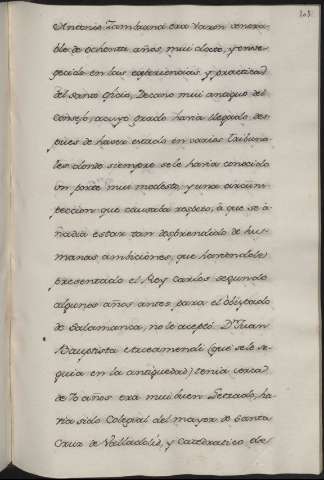 Antonio Zambrana era varon venera-
ble de ochenta años, mui docto, y enve-
gecido en las experiencias, y practicas
del santo oficio, Decano mui antiguo del
Consejo, a cuyo grado havia llegado des-
pues de haver estado en varios Tribuna-
les, donde siempre se le havia conocido
un porte mui modesto, y una circuns-
peccion que causaba respeto, à que se a-
ñadia estar tan desprendido de hu-
manas ambiciones, que haviendole
presentado el Rey Carlos segundo
algunos años antes para el Obispado
de Salamanca, no le aceptó. Dn. Juan
Bauptista Arzeamendi (que se le se-
guia en la antiguedad) tenia cerca
de 70 años era mui buen Letrado, ha-
via sido Colegial del mayor de Santa
Cruz de Valladolid, y Cathedratico de